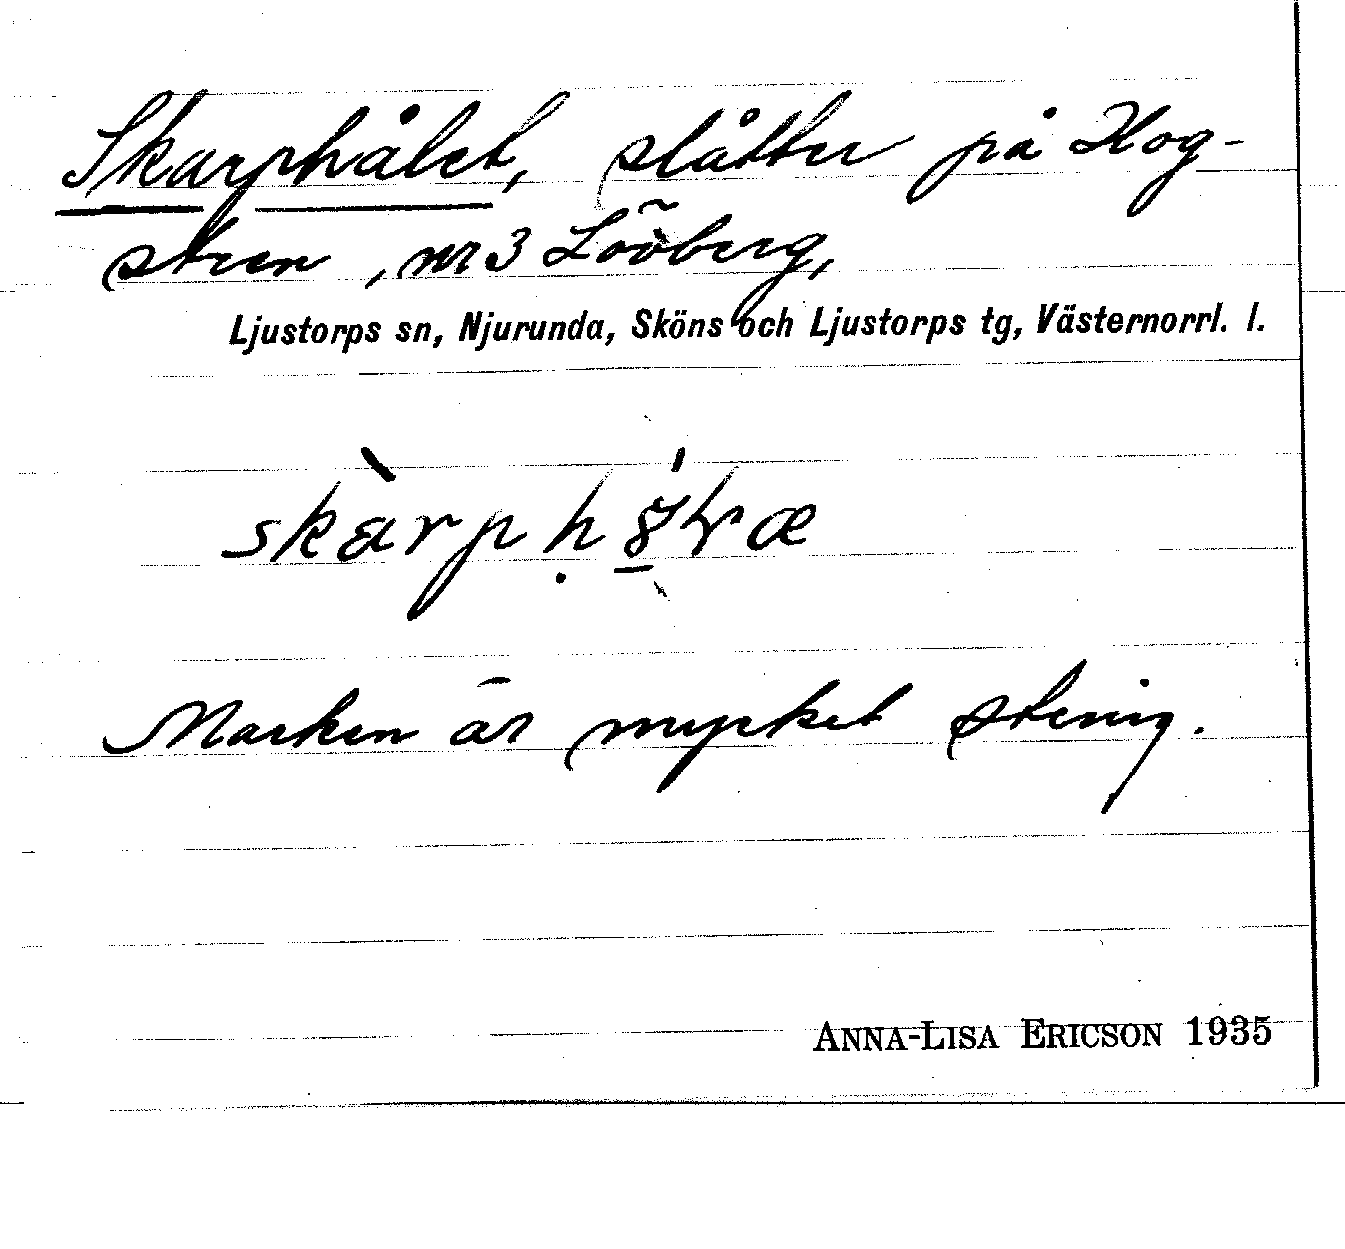 Skarphålet, slåtter på Hog-
steen, nr 3 Lööberg,
Ljustorps sn, Njurunda, Sköns och Ljustorps tg, Västernorrl. l.
Marken är mycket stenig.
ANNA-LISA ERICSON 1935